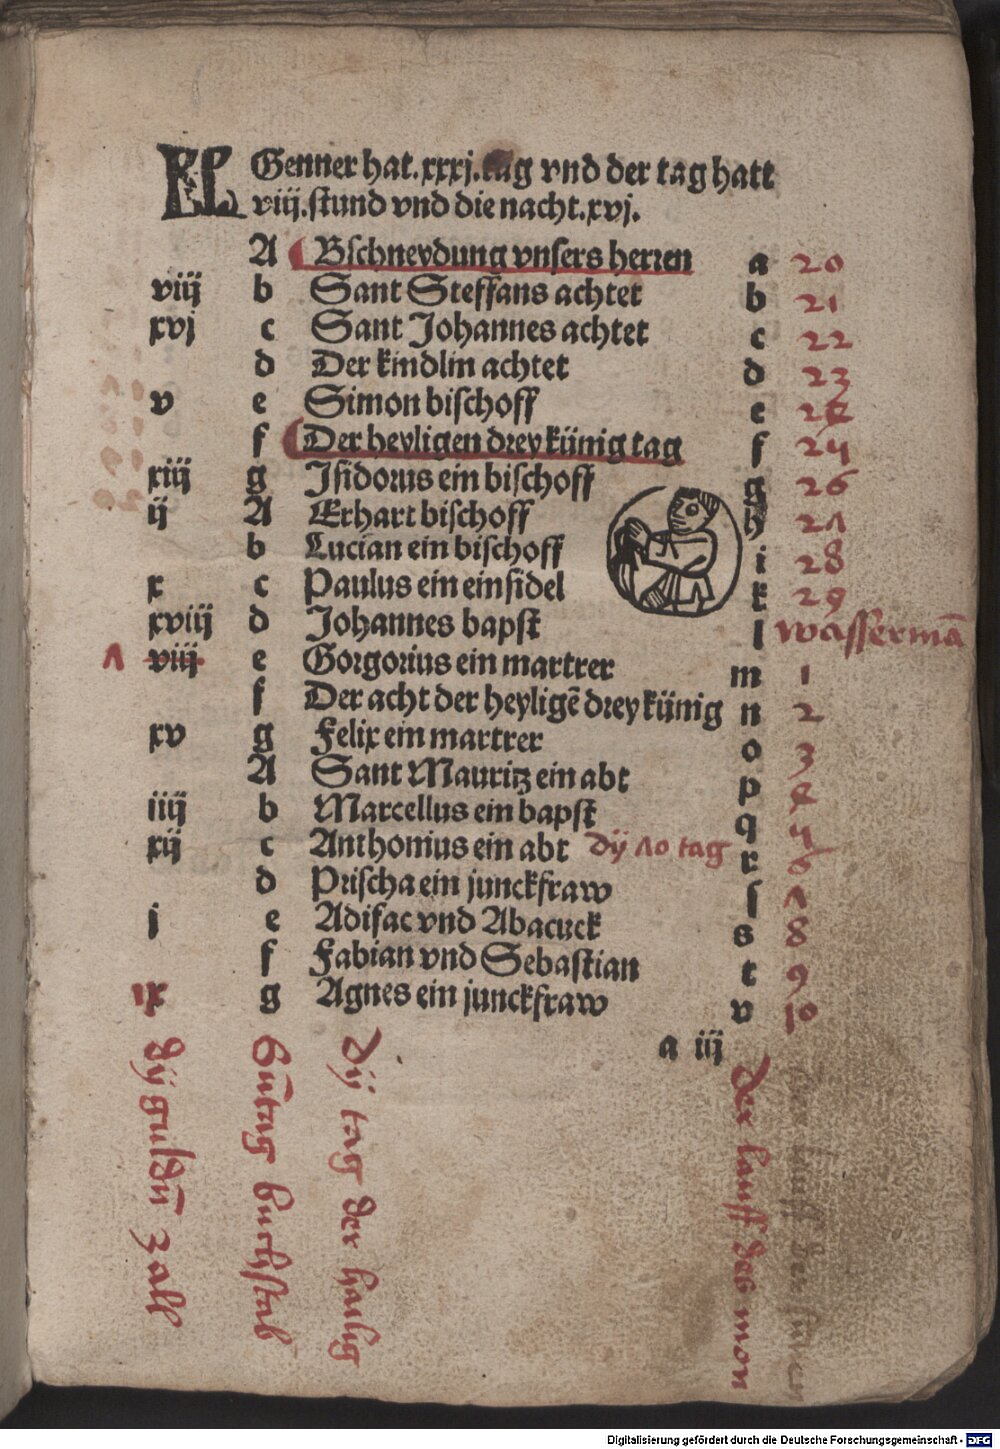 KL Genner hat .xxxj. tag vnd der tag hatt
viij. stund vnd die nacht .xvj.
A Bschneydung vnsers herren a 20
viij b Sant Steffans achtet b 21
xvj c Sant Johannes achtet c 22
d Der kindlin achtet d 23
v e Simon bischoff e 24
f Der heyligen drey künig tag f 25
xiij g Isidorus ein bischoff g 26
ij A Erhart bischoff h 27
b Lucian ein bischoff i 28
x c Paulus ein einsidel k 29
xviij d Johannes bapst l wasserman̄
7 viij e Gorgorius ein martrer m 1
f Der acht der heyligē drey künig n 2
xv g Felix ein martrer o 3
A Sant Mauritz ein abt p 4
iiij b Marcellus ein bapst q 5
xij c Anthonius ein abt dÿ 10 tag r 6
d Prischa ein junckfraw ſ 7
j e Adifac vnd Abacuck s 8
f Fabian vnd Sebastian t 9
ix g Agnes ein junckfraw v 10
a iij
dÿ guldn̄ zall
Sūtag buchstab
Dÿ tag der hailig
der lauff des mon
Digitalisierung gefördert durch die Deutsche Forschungsgemeinschaft - DFG